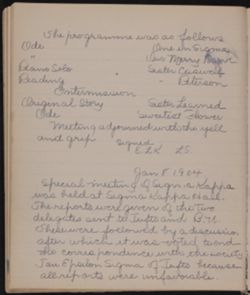 The programme was as follows
Ode One in Sigma
" Our Merry Band
Piano Solo Sister Caswell
Reading " Peterson
Intermission
Original Story Sister Learned
Ode Sweetest Flower
Meeting adjourned with the yell
and grip signed
Jan 8 1904
Special meeting of Sigma Kappa
was held at Sigma Kappa Hall.
The reports were given of the two
delegates sent to Tufts and B.U.
These were followed by a discussion
after which it was voted to end
the correspondence with the society
Tau Epsilon Sigma of Tufts because
all reports were unfavorable.